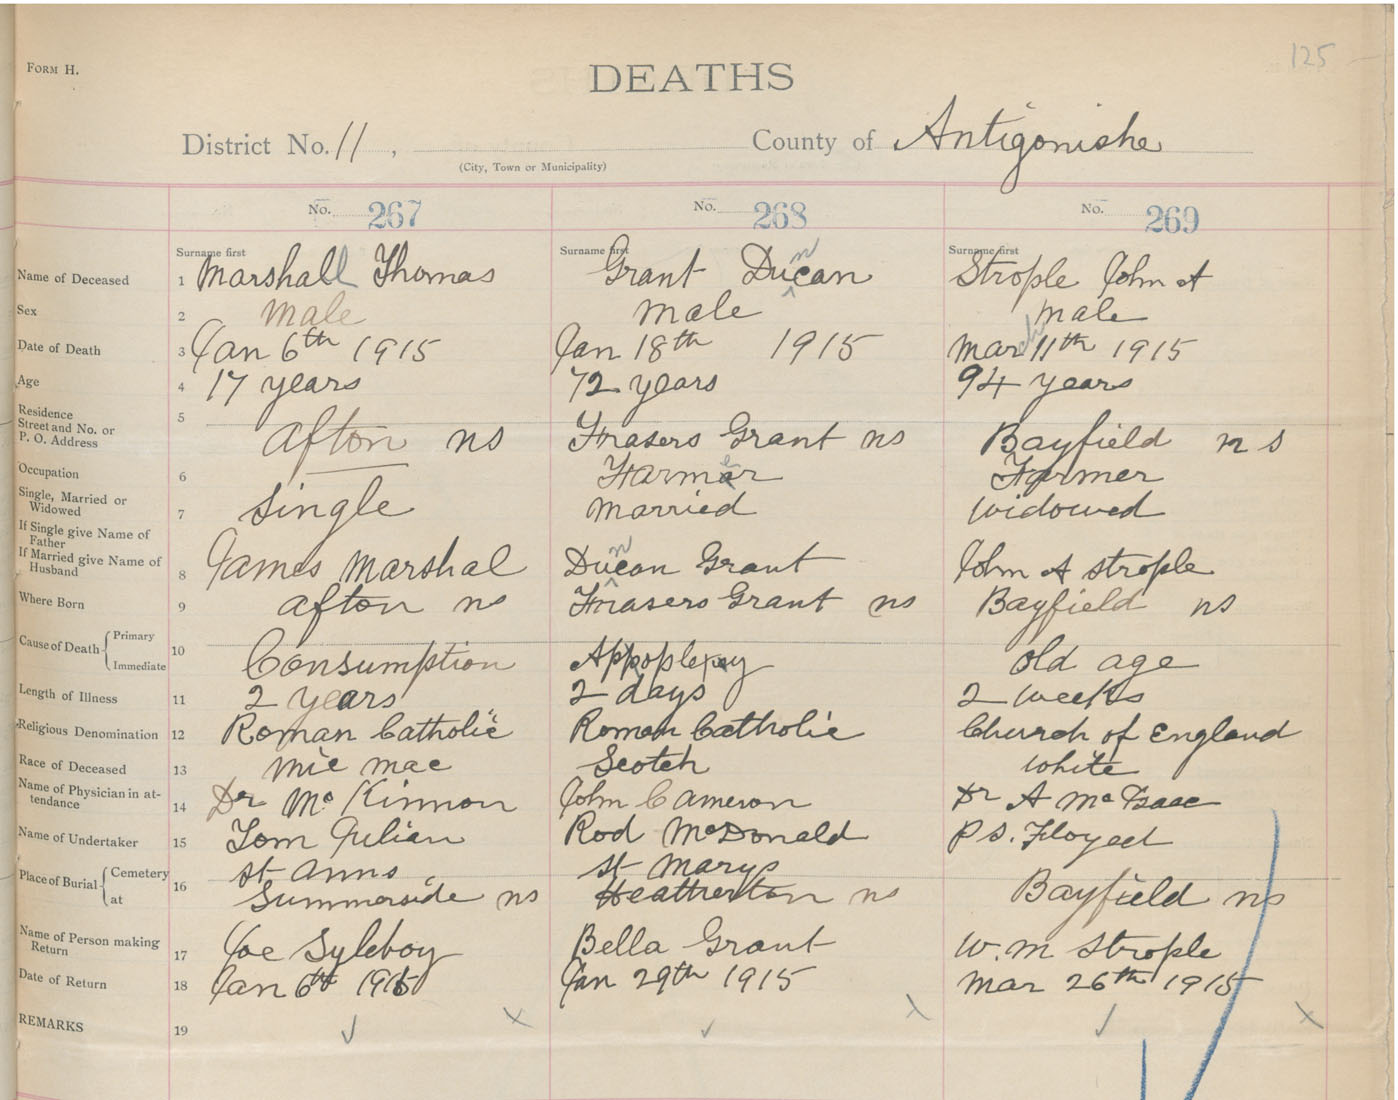 125
FORM H.
DEATHS
District No. 11, County of Antigonishe
(City, Town or Municipality)
No. 267 No. 268 No. 269
Surname first Surname first Surname first
Name of Deceased 1 Marshall Thomas Grant Duncan Strople John A
Sex 2 male male male
Date of Death 3 Jan 6th 1915 Jan 18th 1915 March 11th 1915
Age 4 17 years 72 years 94 years
Residence Street and No. or P. O. Address 5 afton ns Frasers Grant ns Bayfield n s
Occupation 6 — Farmer Farmer
Single, Married or Widowed 7 single married widowed
If Single give Name of Father
If Married give Name of Husband 8 James Marshal Duncan Grant John A strople
Where Born 9 afton ns Frasers Grant ns Bayfield ns
Cause of Death { Primary Immediate 10 Consumption Appoplexy old age
Length of Illness 11 2 years 2 days 2 weeks
Religious Denomination 12 Roman Catholic Roman Catholic Church of England
Race of Deceased 13 mic mac Scotch white
Name of Physician in attendance 14 Dr Mc Kinnon John Cameron Dr A Mc Isaac
Name of Undertaker 15 Tom Julian Rod McDonald P S. Floyed
Place of Burial { Cemetery 16 st anns st Marys
at Summerside ns Heatherton ns Bayfield ns
Name of Person making Return 17 Joe Syleboy Bella Grant W. M Strople
Date of Return 18 Jan 6th 1915 Jan 29th 1915 Mar 26th 1915
REMARKS 19 ✓ x ✓ x ✓ x